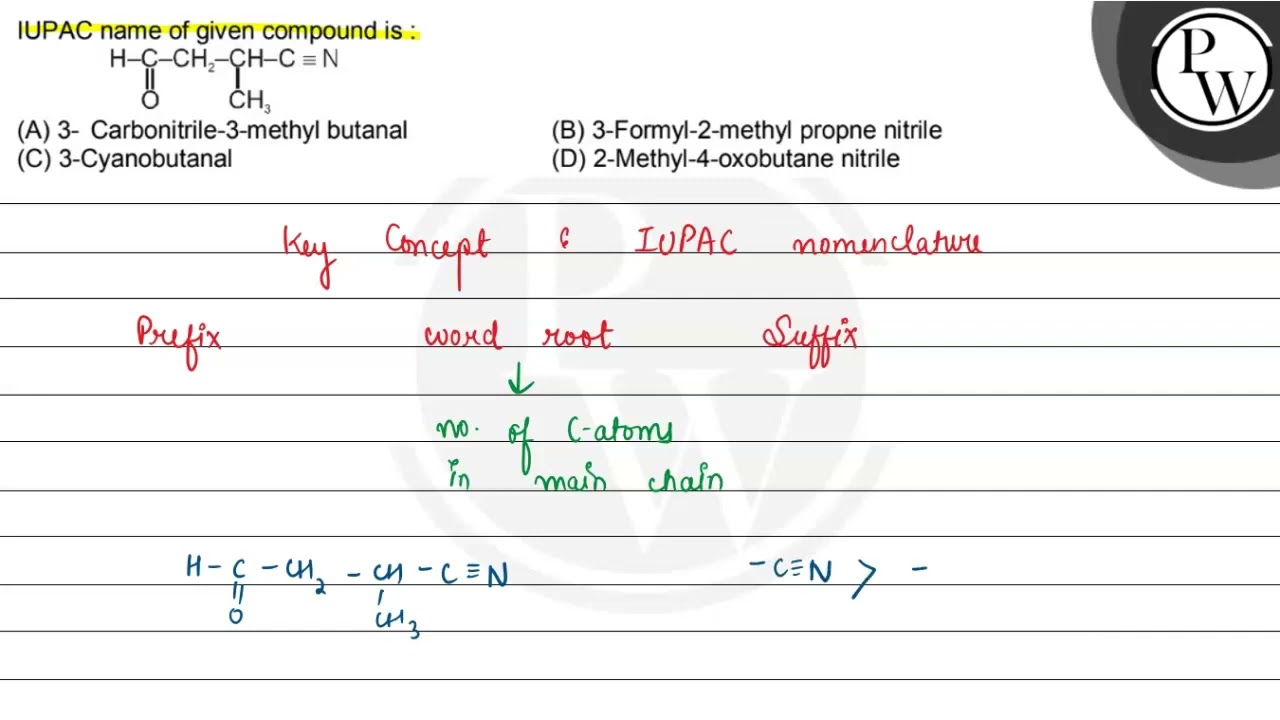 IUPAC name of given compound is :
H–C–CH₂–CH–C ≡ N
O CH₃
(A) 3- Carbonitrile-3-methyl butanal (B) 3-Formyl-2-methyl propne nitrile
(C) 3-Cyanobutanal (D) 2-Methyl-4-oxobutane nitrile
PW
Key Concept : IUPAC nomenclature
Prefix word root Suffix
↓
no. of C-atoms
in main chain
H – C – CH₂ – CH – C ≡ N –C≡N > –
O CH₃